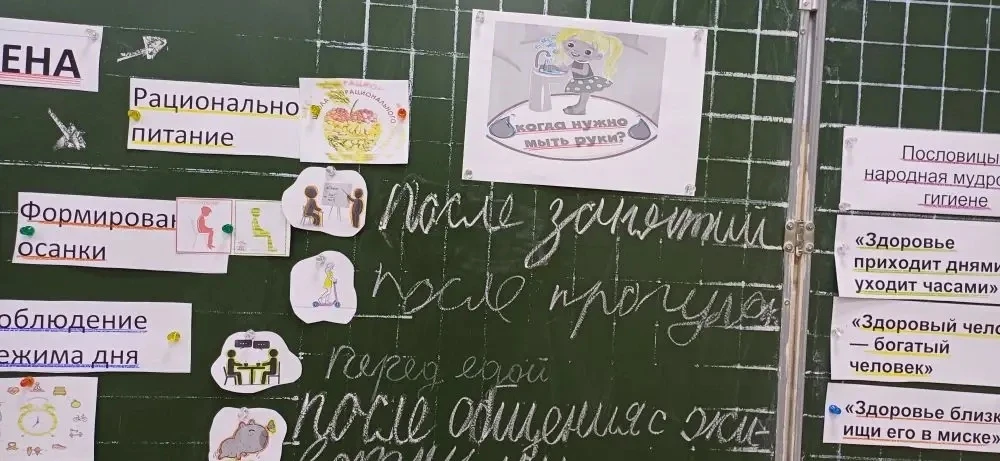 ЕНА
Рационально
питание
РАЦИОНАЛЬНОГО
Формирован
осанки
облюдение
ежима дня
когда нужно
мыть руки?
после занятий
после прогулок
перед едой
после общения с жи-
Пословицы
народная мудро
гигиене
«Здоровье
приходит днями
уходит часами»
«Здоровый чело
— богатый
человек»
«Здоровье близк
ищи его в миске»